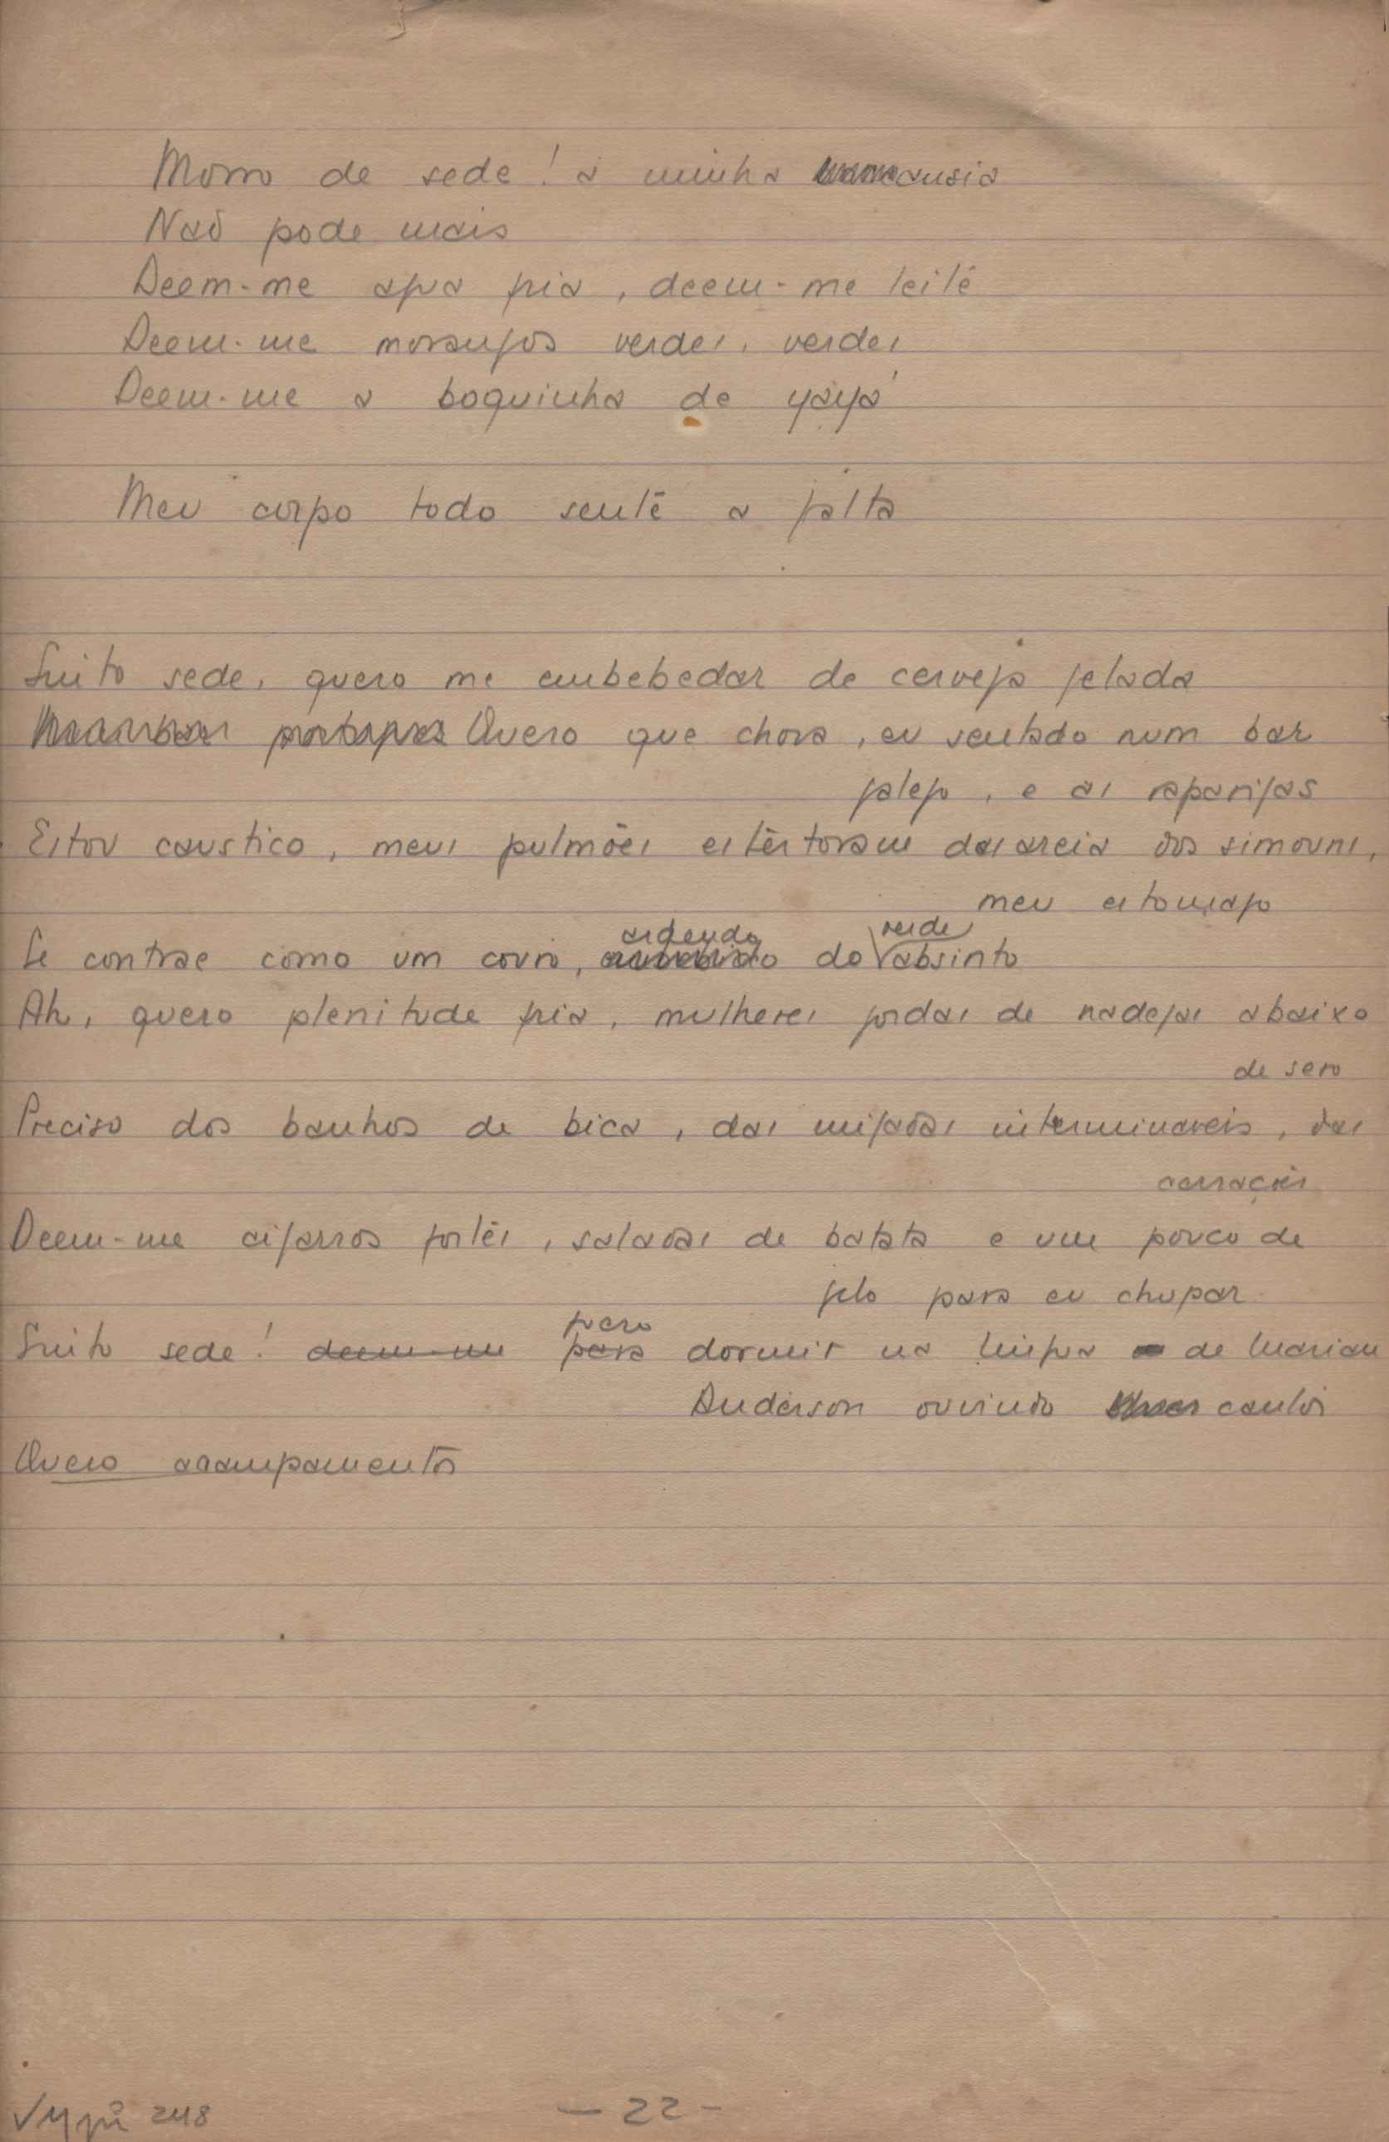 Morro de sede! a minha ansia
Não pode mais
Deem-me agua fria, deem-me leite
Deem-me morangos verdes, verdes
Deem-me a boquinha de yáyá
Meu corpo todo sente a falta
Sinto sede, quero me embebedar de cerveja gelada
Quero que chova, eu sentado num bar
galego, e as raparigas
Estou caustico, meus pulmões estertoram da areia dos simouns,
meu estomago
Se contrae como um couro, ardendo do verde absinto
Ah, quero plenitude fria, mulheres gordas de nadegas abaixo
de zero
Preciso dos banhos de bica, das mijadas interminaveis, das
cerrações
Deem-me cigarros fortes, saladas de batata e um pouco de
gelo para eu chupar
Sinto sede! deem-me para quero dormir na lingua de Marian
Anderson ouvindo cantos
Quero acampamentos
248
- 22 -